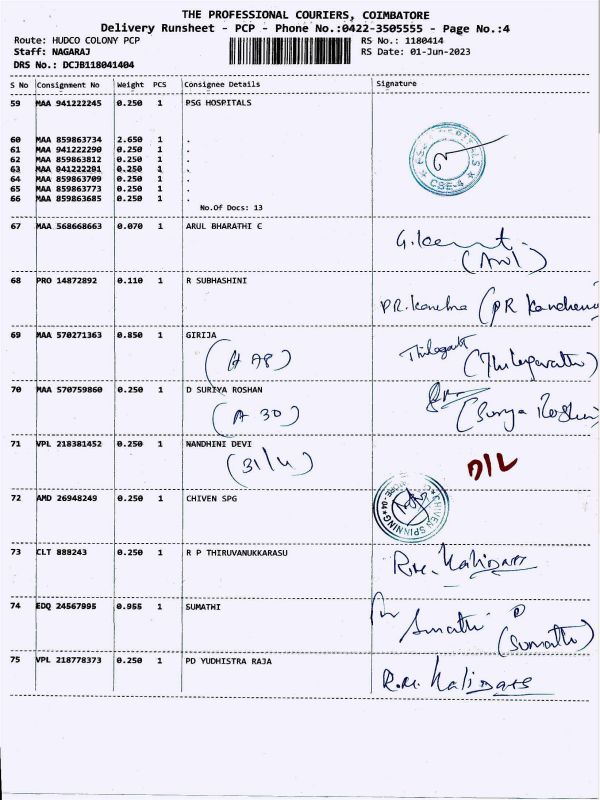 THE PROFESSIONAL COURIERS, COIMBATORE
Delivery Runsheet - PCP - Phone No.:0422-3505555 - Page No.:4
Route: HUDCO COLONY PCP RS No.: 1180414
Staff: NAGARAJ RS Date: 01-Jun-2023
DRS No.: DCJB118041404
S No Consignment No Weight PCS Consignee Details Signature
59 MAA 941222245 0.250 1 PSG HOSPITALS
60 MAA 859863734 2.650 1 .
61 MAA 941222290 0.250 1 .
62 MAA 859863812 0.250 1 .
63 MAA 941222291 0.250 1 .
64 MAA 859863709 0.250 1 .
65 MAA 859863773 0.250 1 .
66 MAA 859863685 0.250 1 .
No.Of Docs: 13
CSE-4
67 MAA 568668663 0.070 1 ARUL BHARATHI C
68 PRO 14872892 0.110 1 R SUBHASHINI
PR. (PR
69 MAA 570271363 0.850 1 GIRIJA
70 MAA 570759860 0.250 1 D SURIYA ROSHAN
(A 30) (Surya Roshan)
71 VPL 218381452 0.250 1 NANDHINI DEVI
(31/4) D/L
72 AMD 26948249 0.250 1 CHIVEN SPG
CHIVEN SPINNING
73 CLT 888243 0.250 1 R P THIRUVANUKKARASU
R.M. Kalidass
74 EDQ 24567995 0.955 1 SUMATHI
Sumathi
(Sumathi)
75 VPL 218778373 0.250 1 PD YUDHISTRA RAJA
R.M. Kalidass